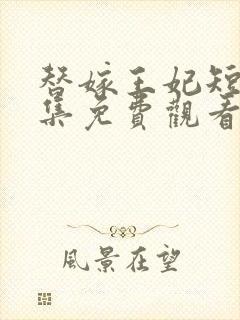 替嫁王妃短
集免費觀看
風景在望